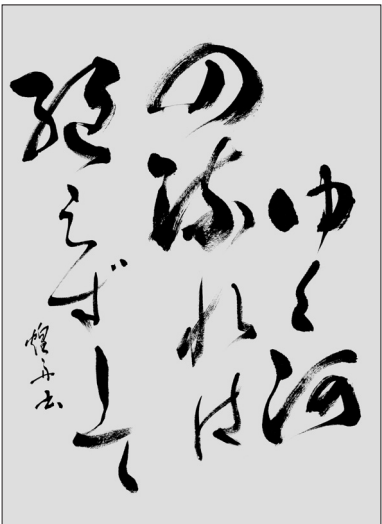 ゆく河
の流れは
絶えずして
煌舟書